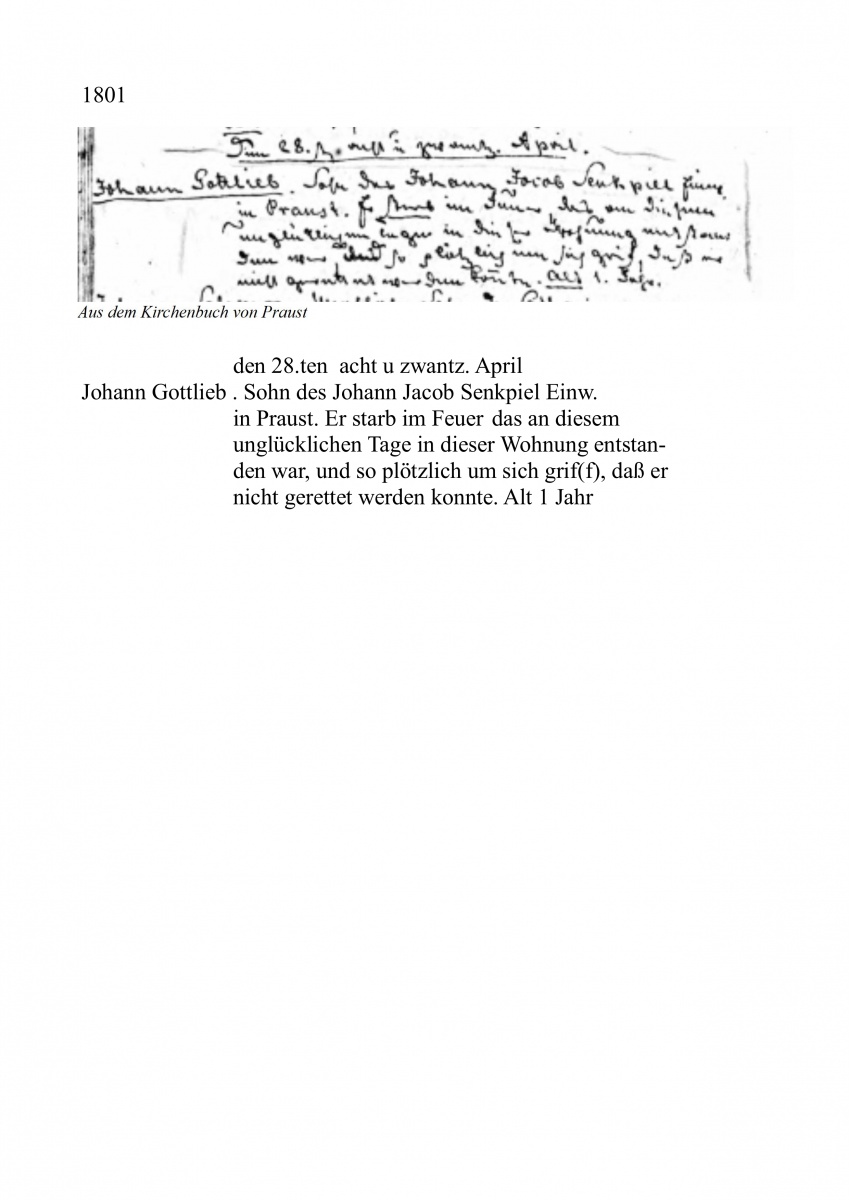 1801
Den 28.t. acht u zwantz. April.
Johann Gottlieb. Sohn des Johann Jacob Senkpiel Einw.
in Praust. Er starb im Feuer das an diesem
unglücklichen Tage in dieser Wohnung entstan
den war, und so plötzlich um sich grif, daß er
nicht gerettet werden konnte. Alt 1. Jahr.
Aus dem Kirchenbuch von Praust
den 28.ten acht u zwantz. April
Johann Gottlieb . Sohn des Johann Jacob Senkpiel Einw.
in Praust. Er starb im Feuer das an diesem
unglücklichen Tage in dieser Wohnung entstan-
den war, und so plötzlich um sich grif(f), daß er
nicht gerettet werden konnte. Alt 1 Jahr